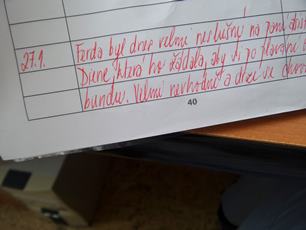 27.1. Ferda byl dnes velmi neslušný na paní
která ho žádala, aby si po plavání
bundu. Velmi nevhodně a drze se
40